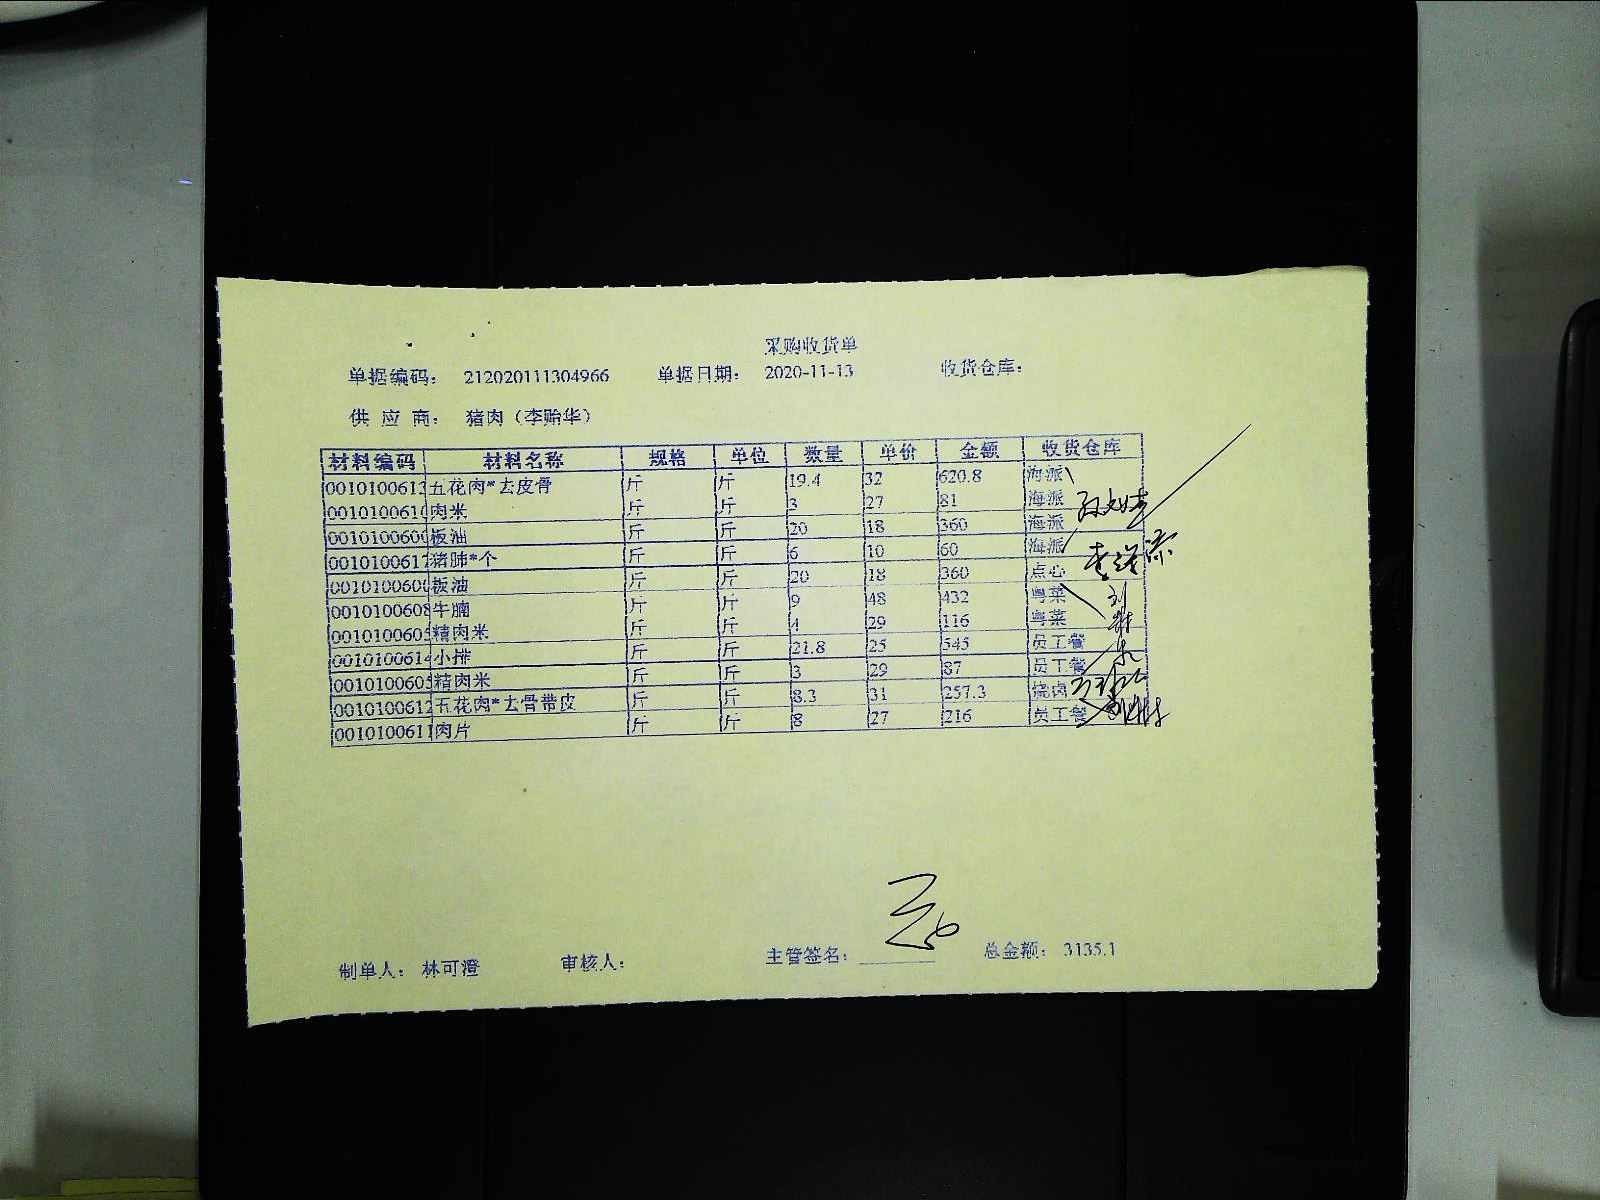 采购收货单
单据编码： 212020111304966 单据日期： 2020-11-13 收货仓库：
供 应 商： 猪肉（李贻华）
材料编码 材料名称 规格 单位 数量 单价 金额 收货仓库
0010100613 五花肉*去皮骨 斤 斤 19.4 32 620.8 海派
0010100610 肉米 斤 斤 3 27 81 海派
0010100600 板油 斤 斤 20 18 360 海派
0010100617 猪肺*个 斤 斤 6 10 60 海派
0010100600 板油 斤 斤 20 18 360 点心
0010100608 牛腩 斤 斤 9 48 432 粤菜
0010100605 精肉米 斤 斤 4 29 116 粤菜
0010100614 小排 斤 斤 21.8 25 545 员工餐
0010100605 精肉米 斤 斤 3 29 87 员工餐
0010100612 五花肉*去骨带皮 斤 斤 8.3 31 257.3 烧卤
0010100611 肉片 斤 斤 8 27 216 员工餐
制单人： 林可澄 审核人： 主管签名： 总金额： 3135.1